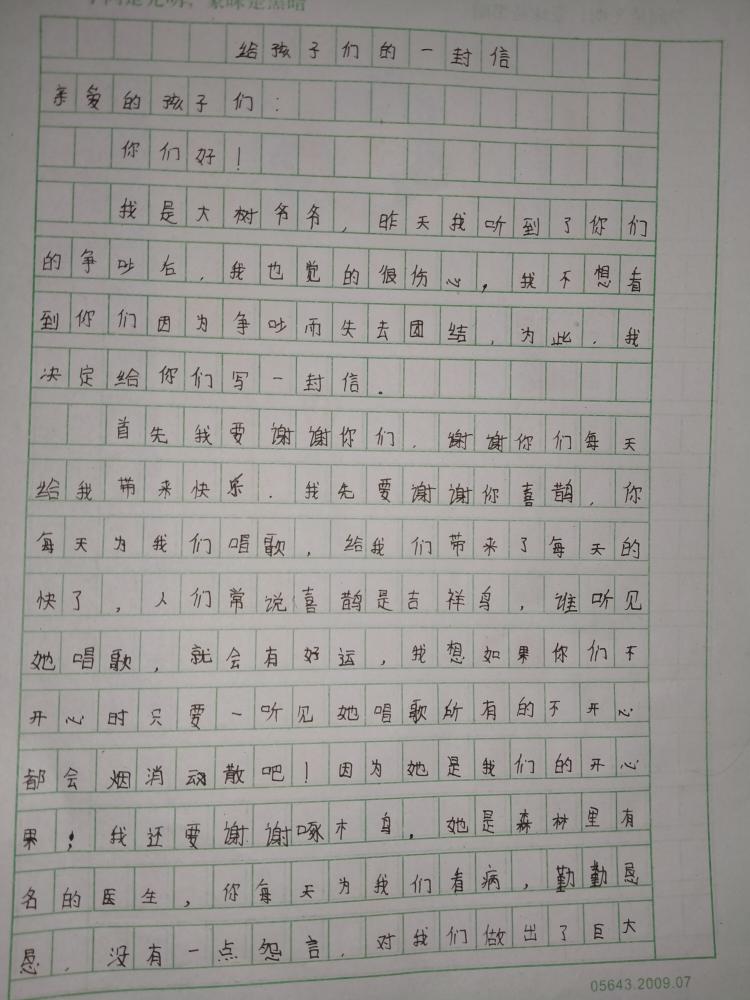 给孩子们的一封信
亲爱的孩子们：
你们好！
我是大树爷爷，昨天我听到了你们
的争吵后，我也觉的很伤心，我不想看
到你们因为争吵而失去团结，为此，我
决定给你们写一封信．
首先我要谢谢你们．谢谢你们每天
给我带来快乐．我先要谢谢你喜鹊．你
每天为我们唱歌，给我们带来了每天的
快了，人们常说喜鹊是吉祥鸟，谁听见
她唱歌，就会有好运，我想如果你们不
开心时只要一听见她唱歌所有的不开心
都会烟消动散吧！因为她是我们的开心
果；我还要谢谢啄木鸟，她是森林里有
名的医生，你每天为我们看病，勤勤恳
恳．没有一点怨言．对我们做出了巨大
05643.2009.07